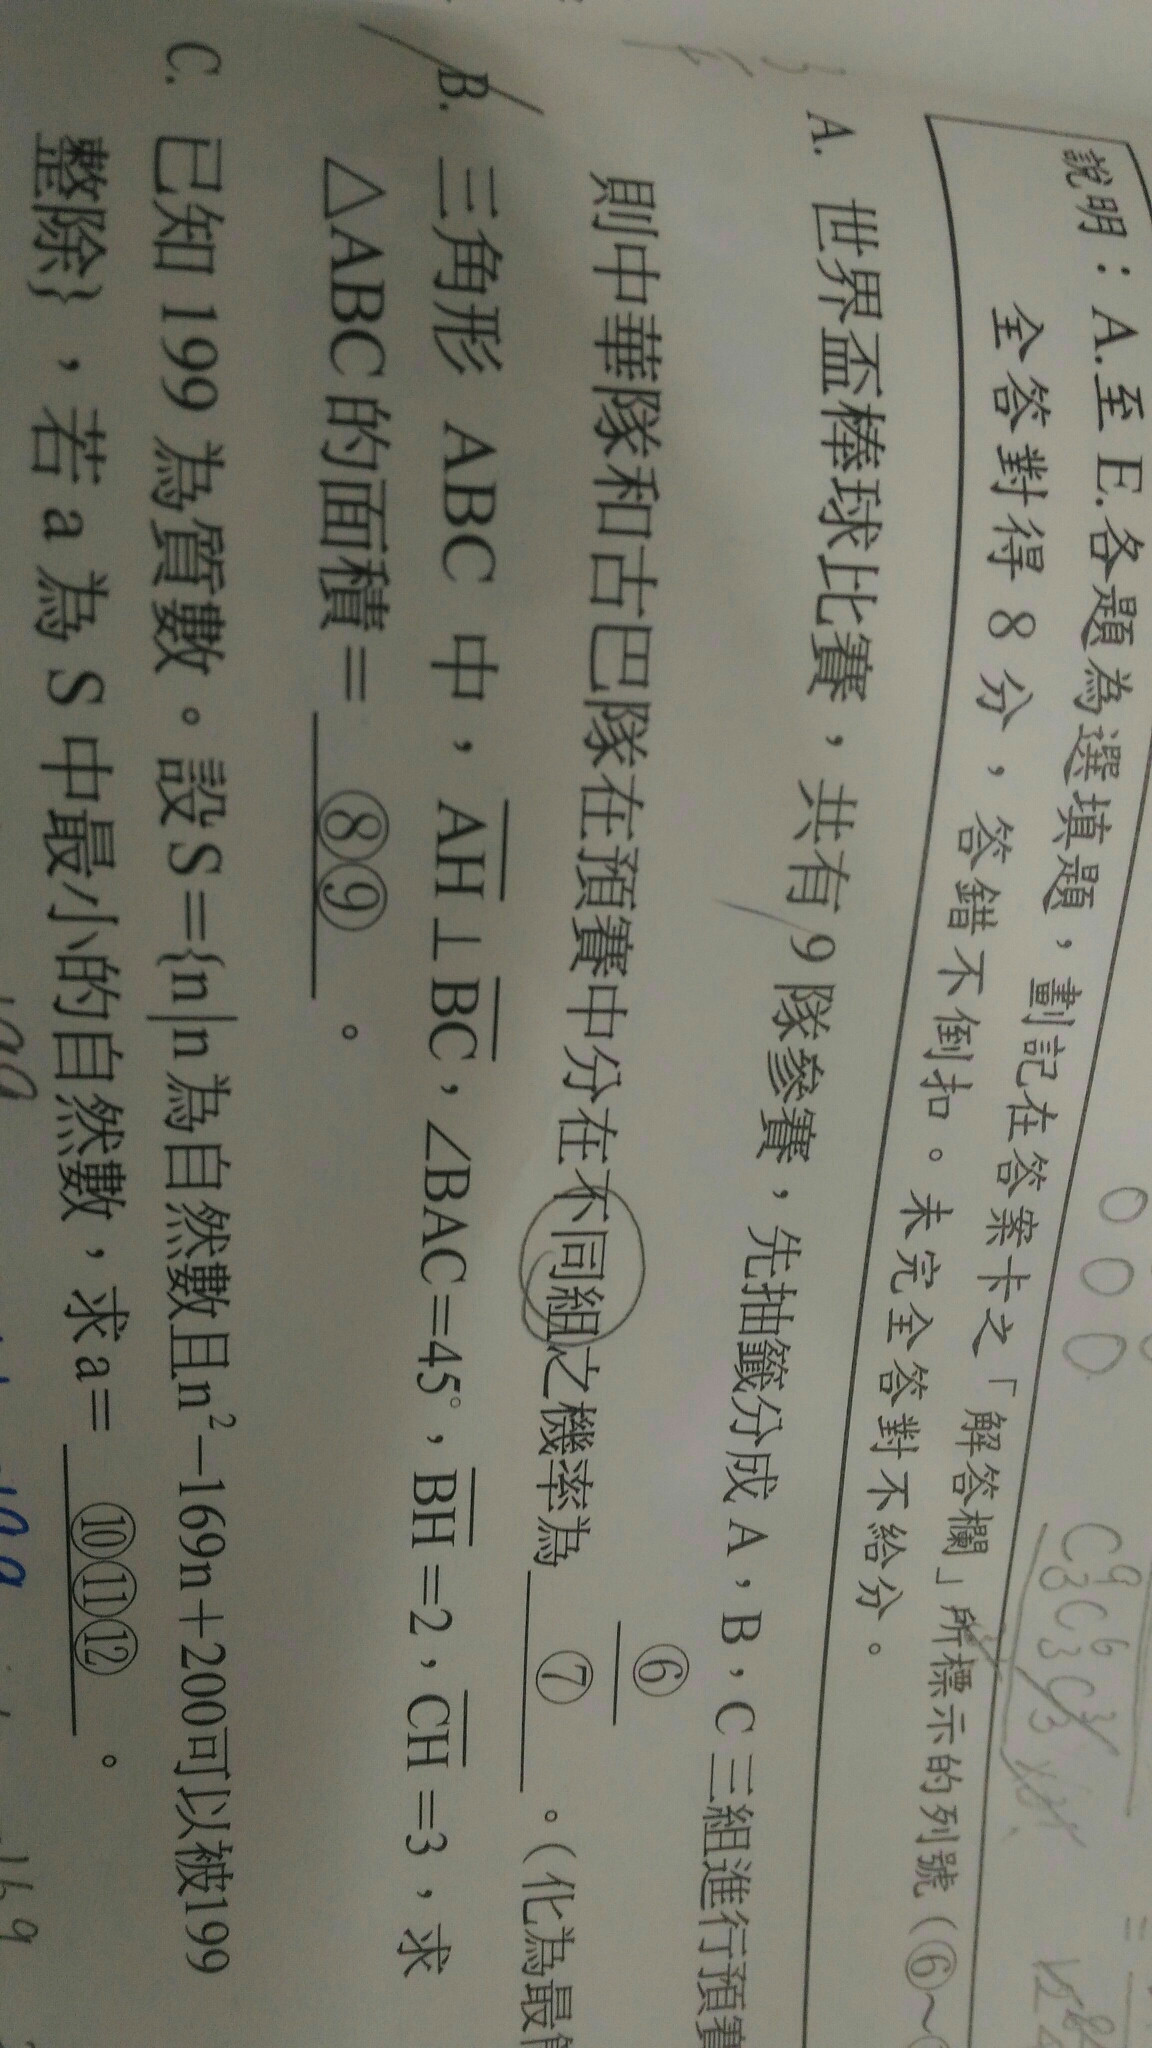 說明：A.至E.各題為選填題，劃記在答案卡之「解答欄」所標示的列號(⑥～
全答對得8分，答錯不倒扣。未完全答對不給分。
A. 世界盃棒球比賽，共有9隊參賽，先抽籤分成A，B，C三組進行預賽
則中華隊和古巴隊在預賽中分在不同組之機率為 ⑥/⑦ 。(化為最
B. 三角形 ABC 中，AH⊥BC，∠BAC=45°，BH=2，CH=3，求
△ABC的面積= ⑧⑨ 。
C. 已知 199 為質數。設S={n|n為自然數且n²−169n+200可以被199
整除}，若a為S中最小的自然數，求a= ⑩⑪⑫ 。
000
C⁹₃C⁶₃C³₃